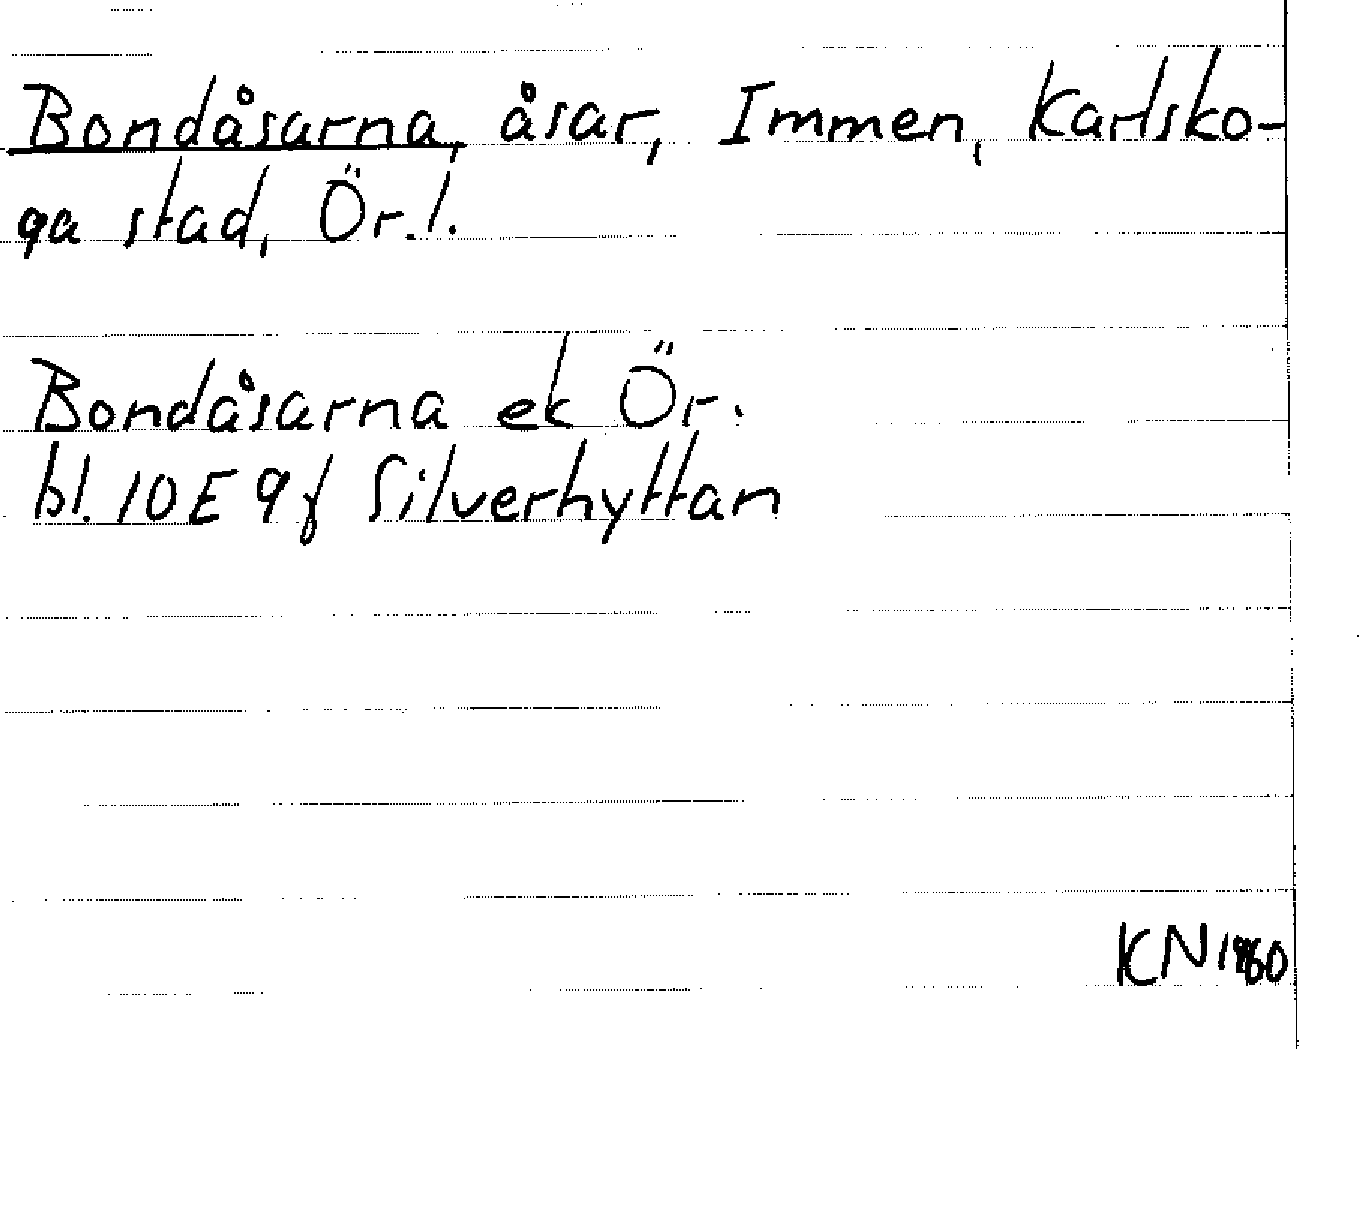 Bondåsarna, åsar, Immen, Karlsko-
ga stad, Ör. l.
Bondåsarna ek Ör.
bl. 10E 9f Silverhyttan
KN 1960